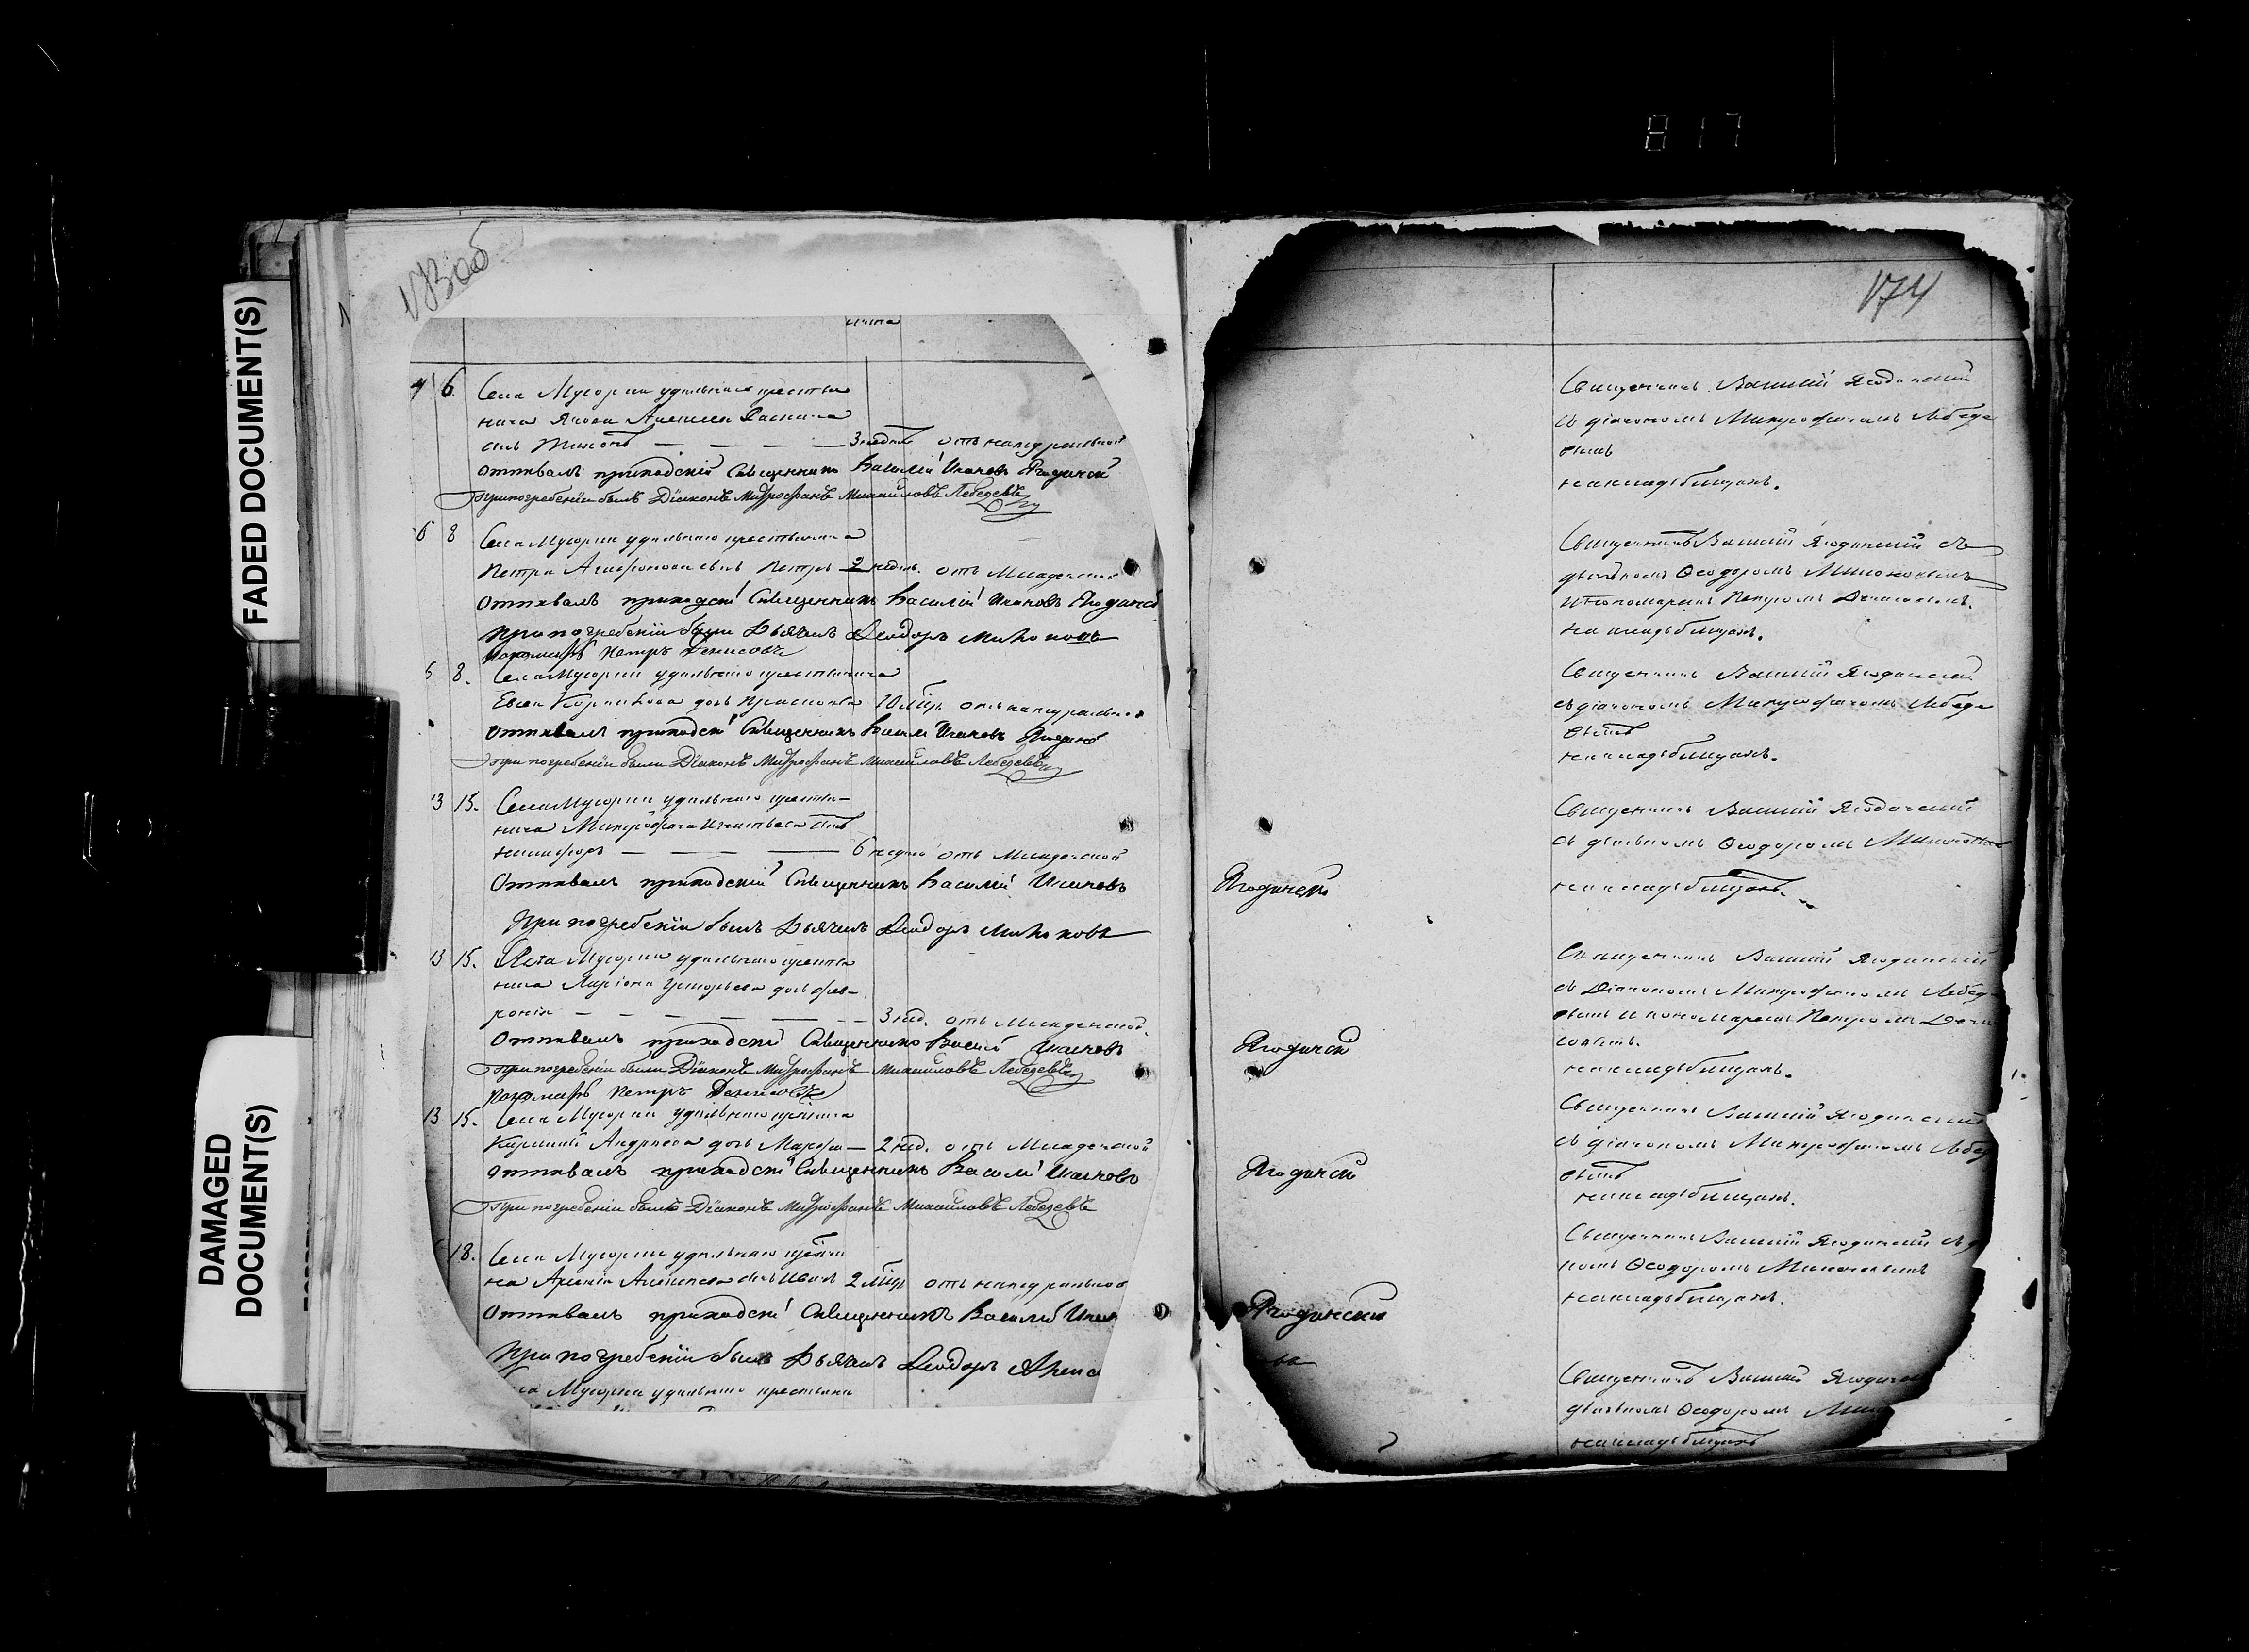 817
FADED DOCUMENT(S)
DAMAGED
DOCUMENT(S)
173об
4 6. Села Мусорки удѣльнаго крестья
нина Якова Алексѣева
сынъ Тихонъ — — — — 3 недѣль отъ натуральной
Отпѣвалъ приходскій Священникъ Василій Ивановъ Ягодинскій
При погребеніи былъ Дїаконъ Митрофанъ Михайловъ Лебедевъ
6 8 Села Мусорки удѣльнаго крестьянина
Петра Агафонова сынъ Петръ 2 недѣль. отъ Младенческой
Отпѣвалъ приходскій Священникъ Василій Ивановъ Ягодинскій
При погребеніи были Дьячекъ Ѳеодоръ
Пономарь Петръ Денисовъ
6 8. Села Мусорки удѣльнаго крестьянина
Евсея дочь Прасковья 10 мѣся. отъ натуральной
Отпѣвалъ приходскій Священникъ Василій Ивановъ Ягодинскій
При погребеніи были Дїаконъ Митрофанъ Михайловъ Лебедевъ
13 15. Села Мусорки удѣльнаго крестья-
нина Митрофана Игнатьева сынъ
Никифоръ — — — — 6 недѣль отъ Младенческой
Отпѣвалъ приходскій Священникъ Василій Ивановъ Ягодинскій
При погребеніи былъ Дьячекъ Ѳеодоръ
13 15. Села Мусорки удѣльнаго крестья
нина Ларіона Григорьева дочь Фев-
ронія — — — — — — 3 нед. отъ Младенческой.
Отпѣвалъ приходскій Священникъ Василій Ивановъ Ягодинскій
При погребеніи были Дїаконъ Митрофанъ Михайловъ Лебедевъ
Пономарь Петръ Денисовъ
13 15. Села Мусорки удѣльнаго
Андреева дочь Марфа — 2 нед. отъ Младенческой
Отпѣвалъ приходскій Священникъ Василій Ивановъ Ягодинскій
При погребеніи былъ Дїаконъ Митрофанъ Михайловъ Лебедевъ
18. Села Мусорки удѣльнаго
на Алексѣева сынъ Иванъ 2 мѣся отъ натуральной
Отпѣвалъ приходскій Священникъ Василій Ягодинскій
При погребеніи былъ Дьячекъ Ѳеодоръ
Мусорки удѣльнаго крестьяни
174
Священникъ Василій Ягодинскій
съ діакономъ Митрофаномъ Лебеде
вымъ
на кладбищахъ.
Священникъ Василій Ягодинскій съ
Ѳеодоромъ
и Пономаремъ Петромъ Денисовымъ.
на кладбищахъ.
Священникъ Василій Ягодинскій
съ діакономъ Митрофаномъ Лебеде
вымъ
на кладбищахъ.
Священникъ Василій Ягодинскій
съ Ѳеодоромъ
на кладбищахъ.
Священникъ Василій Ягодинскій
съ Діакономъ Митрофаномъ Лебед
вымъ и пономаремъ Петромъ Дени
совымъ.
на кладбищахъ.
Священникъ Василій Ягодинскій
съ діакономъ Митрофаномъ Лебед
вымъ
на кладбищахъ.
Священникъ Василій Ягодинскій съ
Ѳеодоромъ
на кладбищахъ.
Священникъ Василій
Ѳеодоромъ
на кладбищахъ